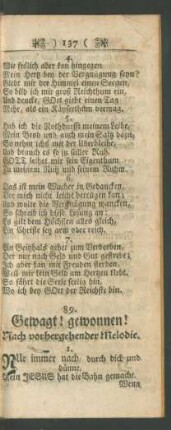 ) 137 (
4.
Wie frölich aber kan hingegen
Mein Hertz bey der Vergnügung seyn?
Giebt mir der Himmel einen Seegen,
So bild ich mir groß Reichthum ein,
Und dencke, GOtt giebt einen Tag
Mehr, als ein Käyserthum vermag.
5.
Hab ich die Nothdurfft meinem Leibe,
Mein Brod und auch mein Saltz dazu,
So nehm ichs mit der Liebe
Und brauch es fein in stiller Ruh.
GOTT leihet mir sein Eigenthum
Zu meinem Nutz und seinem Ruhm.
6.
Das ist mein Wucher in Gedancken,
Der mich nicht leicht betrügen kan;
Und wolte die Vergnügung wancken,
So schreib ich diese Losung an:
Es gilt dem Höchsten alles gleich,
Ein Christe sey arm oder reich.
7.
Ein Geitzhals gehet zum Verderben,
Der nur nach Geld und Gut gestrebet;
Ich aber kan mit Freuden sterben,
Weil mir kein Geld am Hertzen klebt,
So fährt die Seele fertig hin,
Wo ich bey GOtt der Reichste bin.
89.
Gewagt! gewonnen!
Nach vorhergehender Melodie.
1.
Nur immer nach, durch dick und
dünne,
Mein JESUS hat die Bahn gemacht.
Wenn